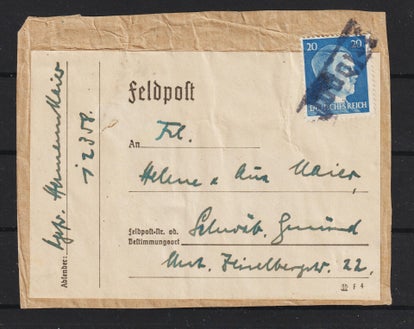 Feldpost
20 20
DEUTSCHES REICH
An Frl.
Helene u Anna Maier,
Feldpost-Nr. od.
Bestimmungsort Schwäb. Gmünd
Unt. Zeiselbergstr. 22.
Absender: Hermann Maier
12358.
F 4